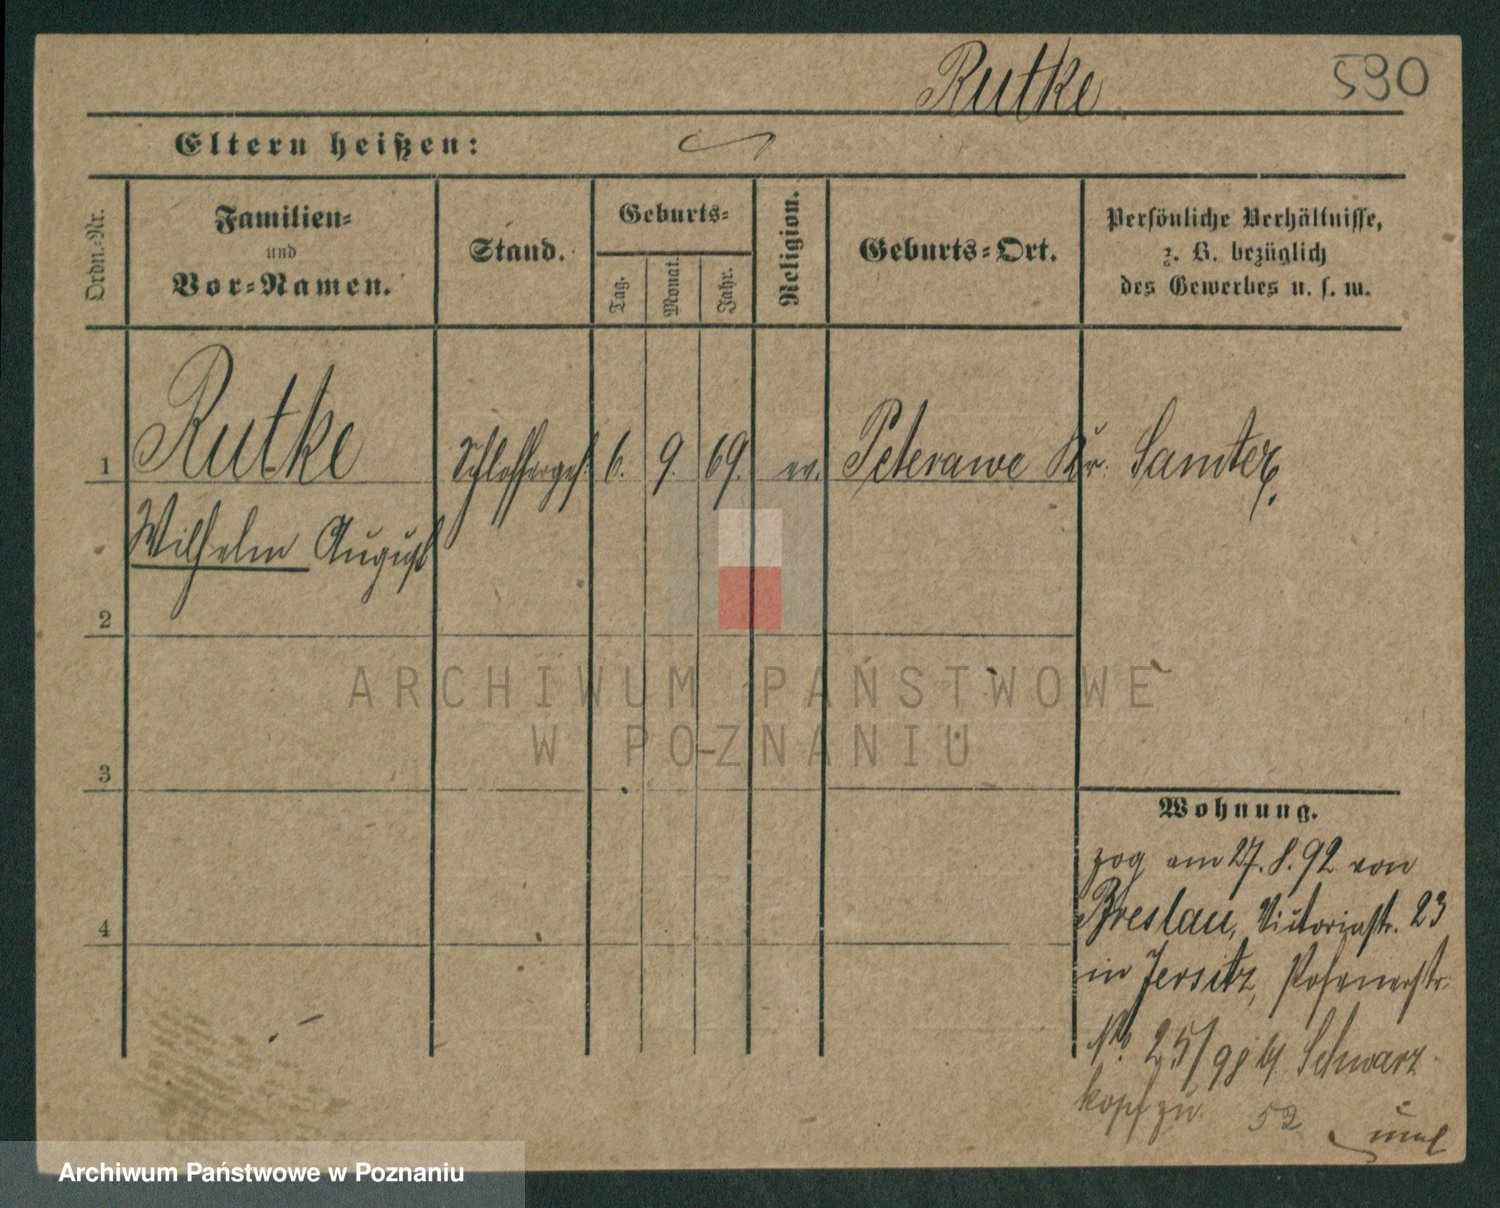 Rutke 590
Eltern heißen:
Ordn.-Nr.
Familien-
und
Vor-Namen.
Stand.
Geburts-
Tag.
Monat.
Jahr.
Religion.
Geburts-Ort.
Persönliche Verhältnisse,
z. B. bezüglich
des Gewerbes u. s. w.
1 Rutke Schlosserges. 6. 9. 69. ev. Peterawe Kr. Samter.
Wilhelm August
2
3
4
Wohnung.
zog am 27. 8. 92 von
Breslau, Victoriastr. 23
in Jersitz, Posenerstr.
No. 25/ Schwarz
kopf zu. 52
ARCHIWUM PAŃSTWOWE
W POZNANIU
Archiwum Państwowe w Poznaniu